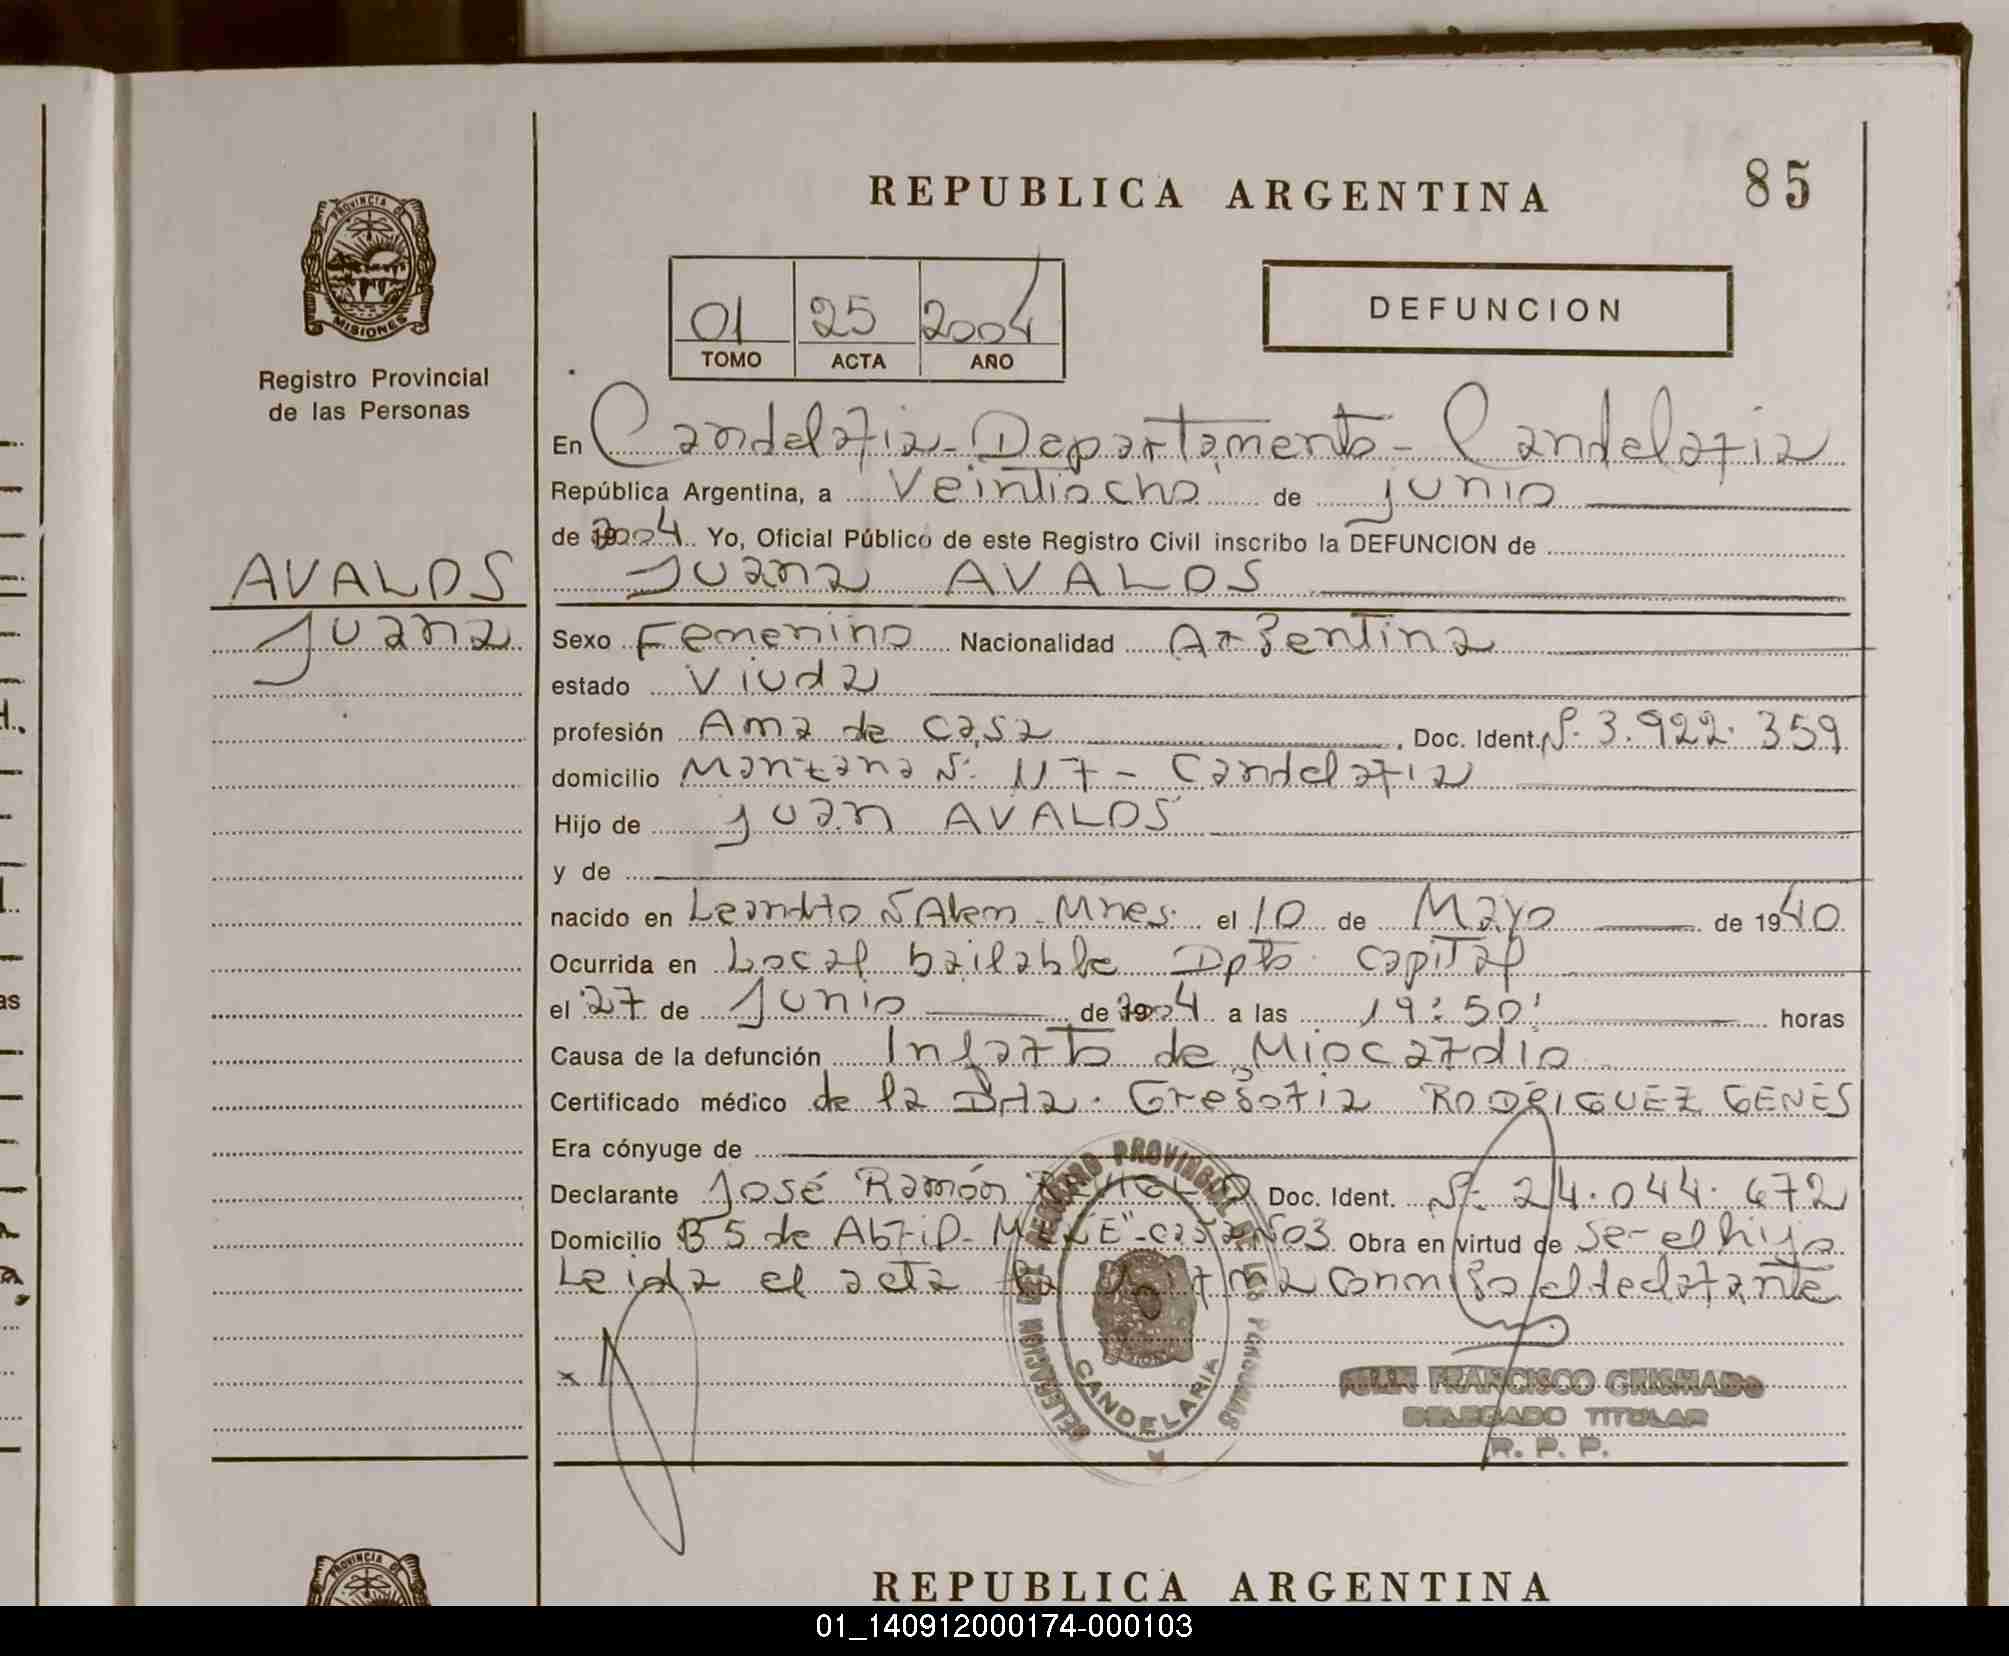 REPUBLICA ARGENTINA
85
PROVINCIA DE
MISIONES
Registro Provincial
de las Personas
01 25 2004
TOMO ACTA AÑO
DEFUNCION
En Candelaria - Departamento - Candelaria
República Argentina, a Veintiocho de junio
de 2004 Yo, Oficial Público de este Registro Civil inscribo la DEFUNCION de
AVALOS
Juana AVALOS
Juana
Sexo Femenino Nacionalidad Argentina
estado Viuda
profesión Ama de casa , Doc. Ident. Nº 3.922.359
domicilio Manzana Nº 117 - Candelaria
Hijo de Juan AVALOS
y de
nacido en Leandro N Alem - Mnes. el 10 de Mayo de 1940
Ocurrida en Local bailable Dpto. Capital
el 27 de Junio de 2004 a las 19:50' horas
Causa de la defunción Infarto de Miocardio
Certificado médico de la Dra. Gregoria RODRIGUEZ GENES
Era cónyuge de
Declarante José Ramón Doc. Ident. Nº 24.044.672
Domicilio Bº 5 de Abril - M "E" - casa Nº 03 Obra en virtud de ser el hijo
Leida el acta la firma conmigo el declarante
x
REGISTRO PROVINCIAL DE LAS PERSONAS
DELEGACION
CANDELARIA
FRANCISCO GRISMADO
DELEGADO TITULAR
R. P. P.
PROVINCIA DE
REPUBLICA ARGENTINA
01_140912000174-000103